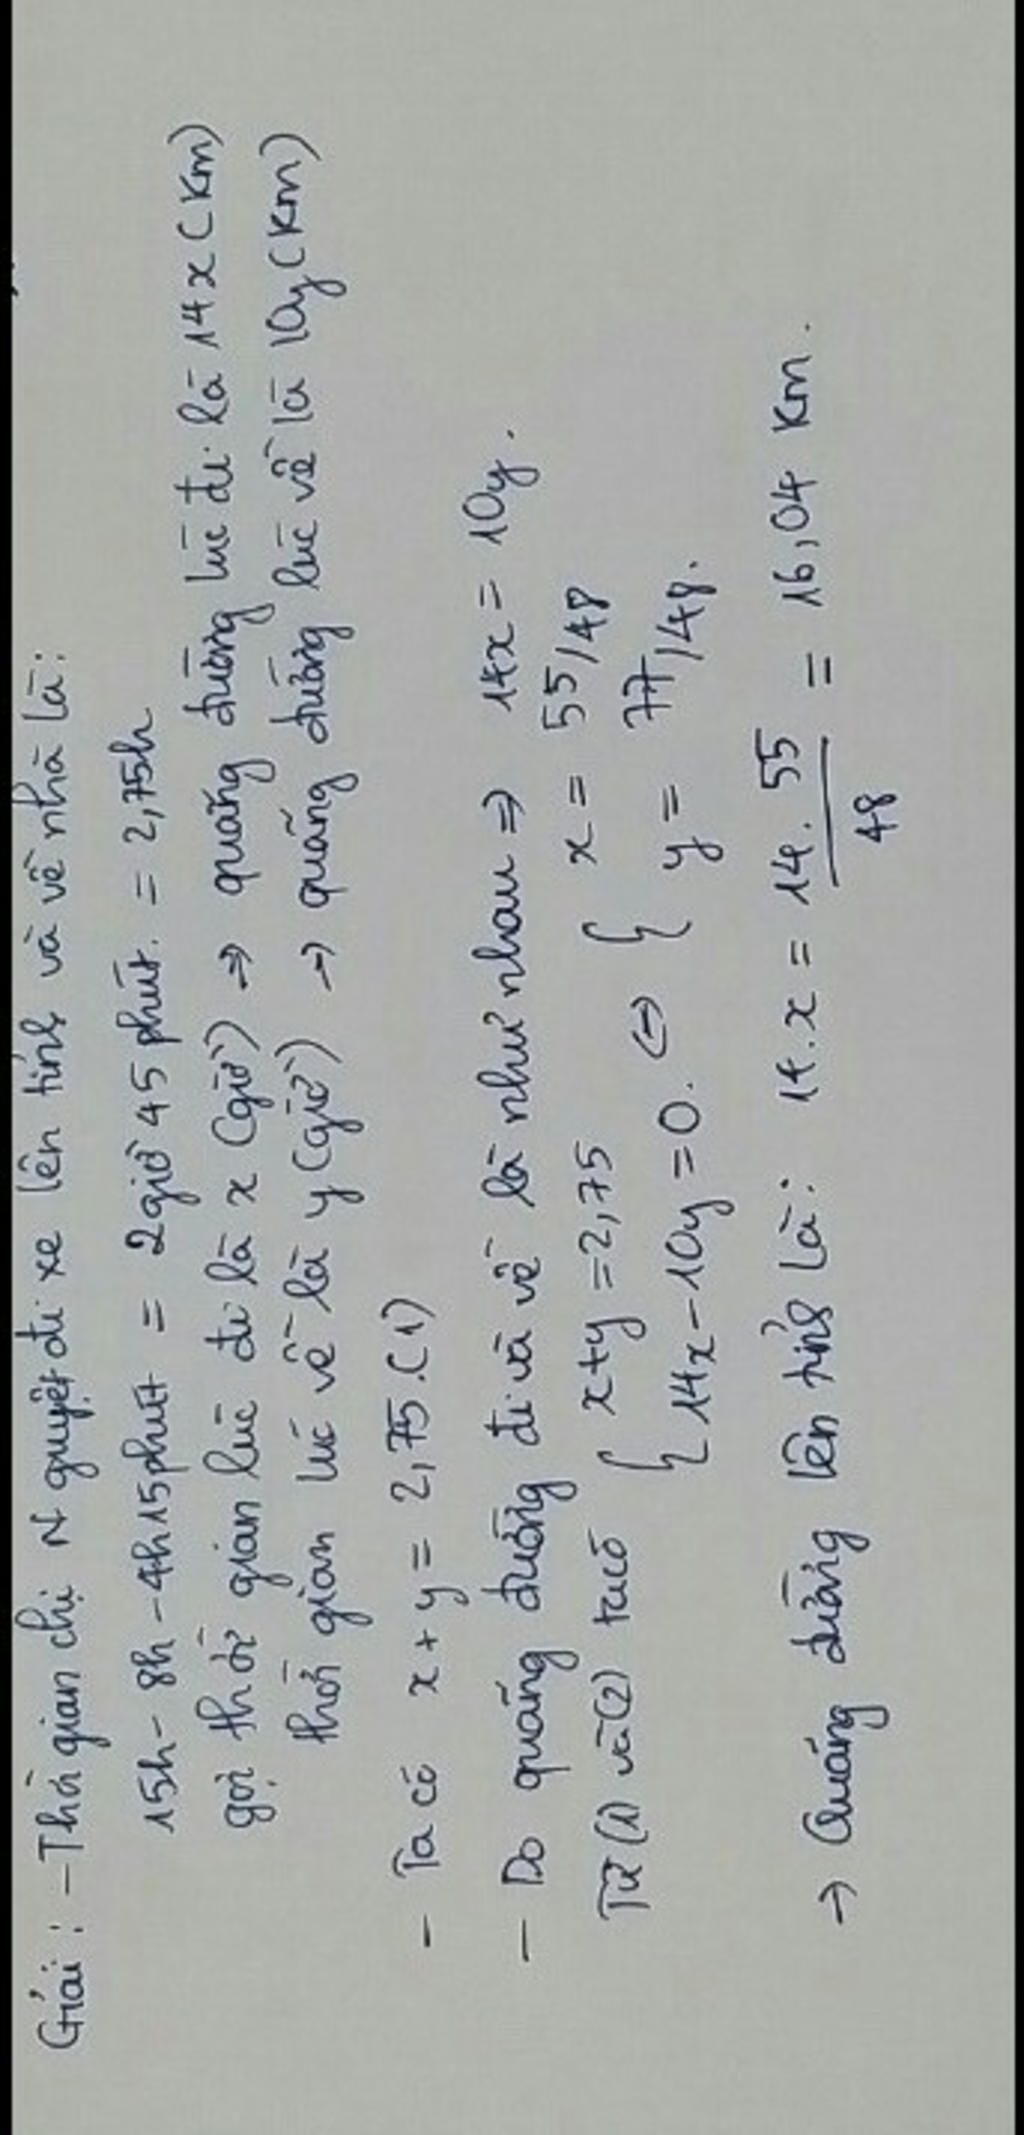 Giải: - Thời gian chị Nguyệt đi xe lên tỉnh và về nhà là:
15h - 8h - 4h15phút = 2giờ 45 phút. = 2,75h
gọi thời gian lúc đi là x (giờ) ⇒ quãng đường lúc đi là 14x (km)
thời gian lúc về là y (giờ) → quãng đường lúc về là 10y (km)
- Ta có x + y = 2,75. (1)
- Do quãng đường đi và về là như nhau ⇒ 14x = 10y.
Từ (1) và (2) ta có { x+y = 2,75
14x - 10y = 0. ⇔ { x = 55/48
y = 77/48.
→ Quãng đường lên tỉnh là: 14.x = 14. 55/48 = 16,04 km.